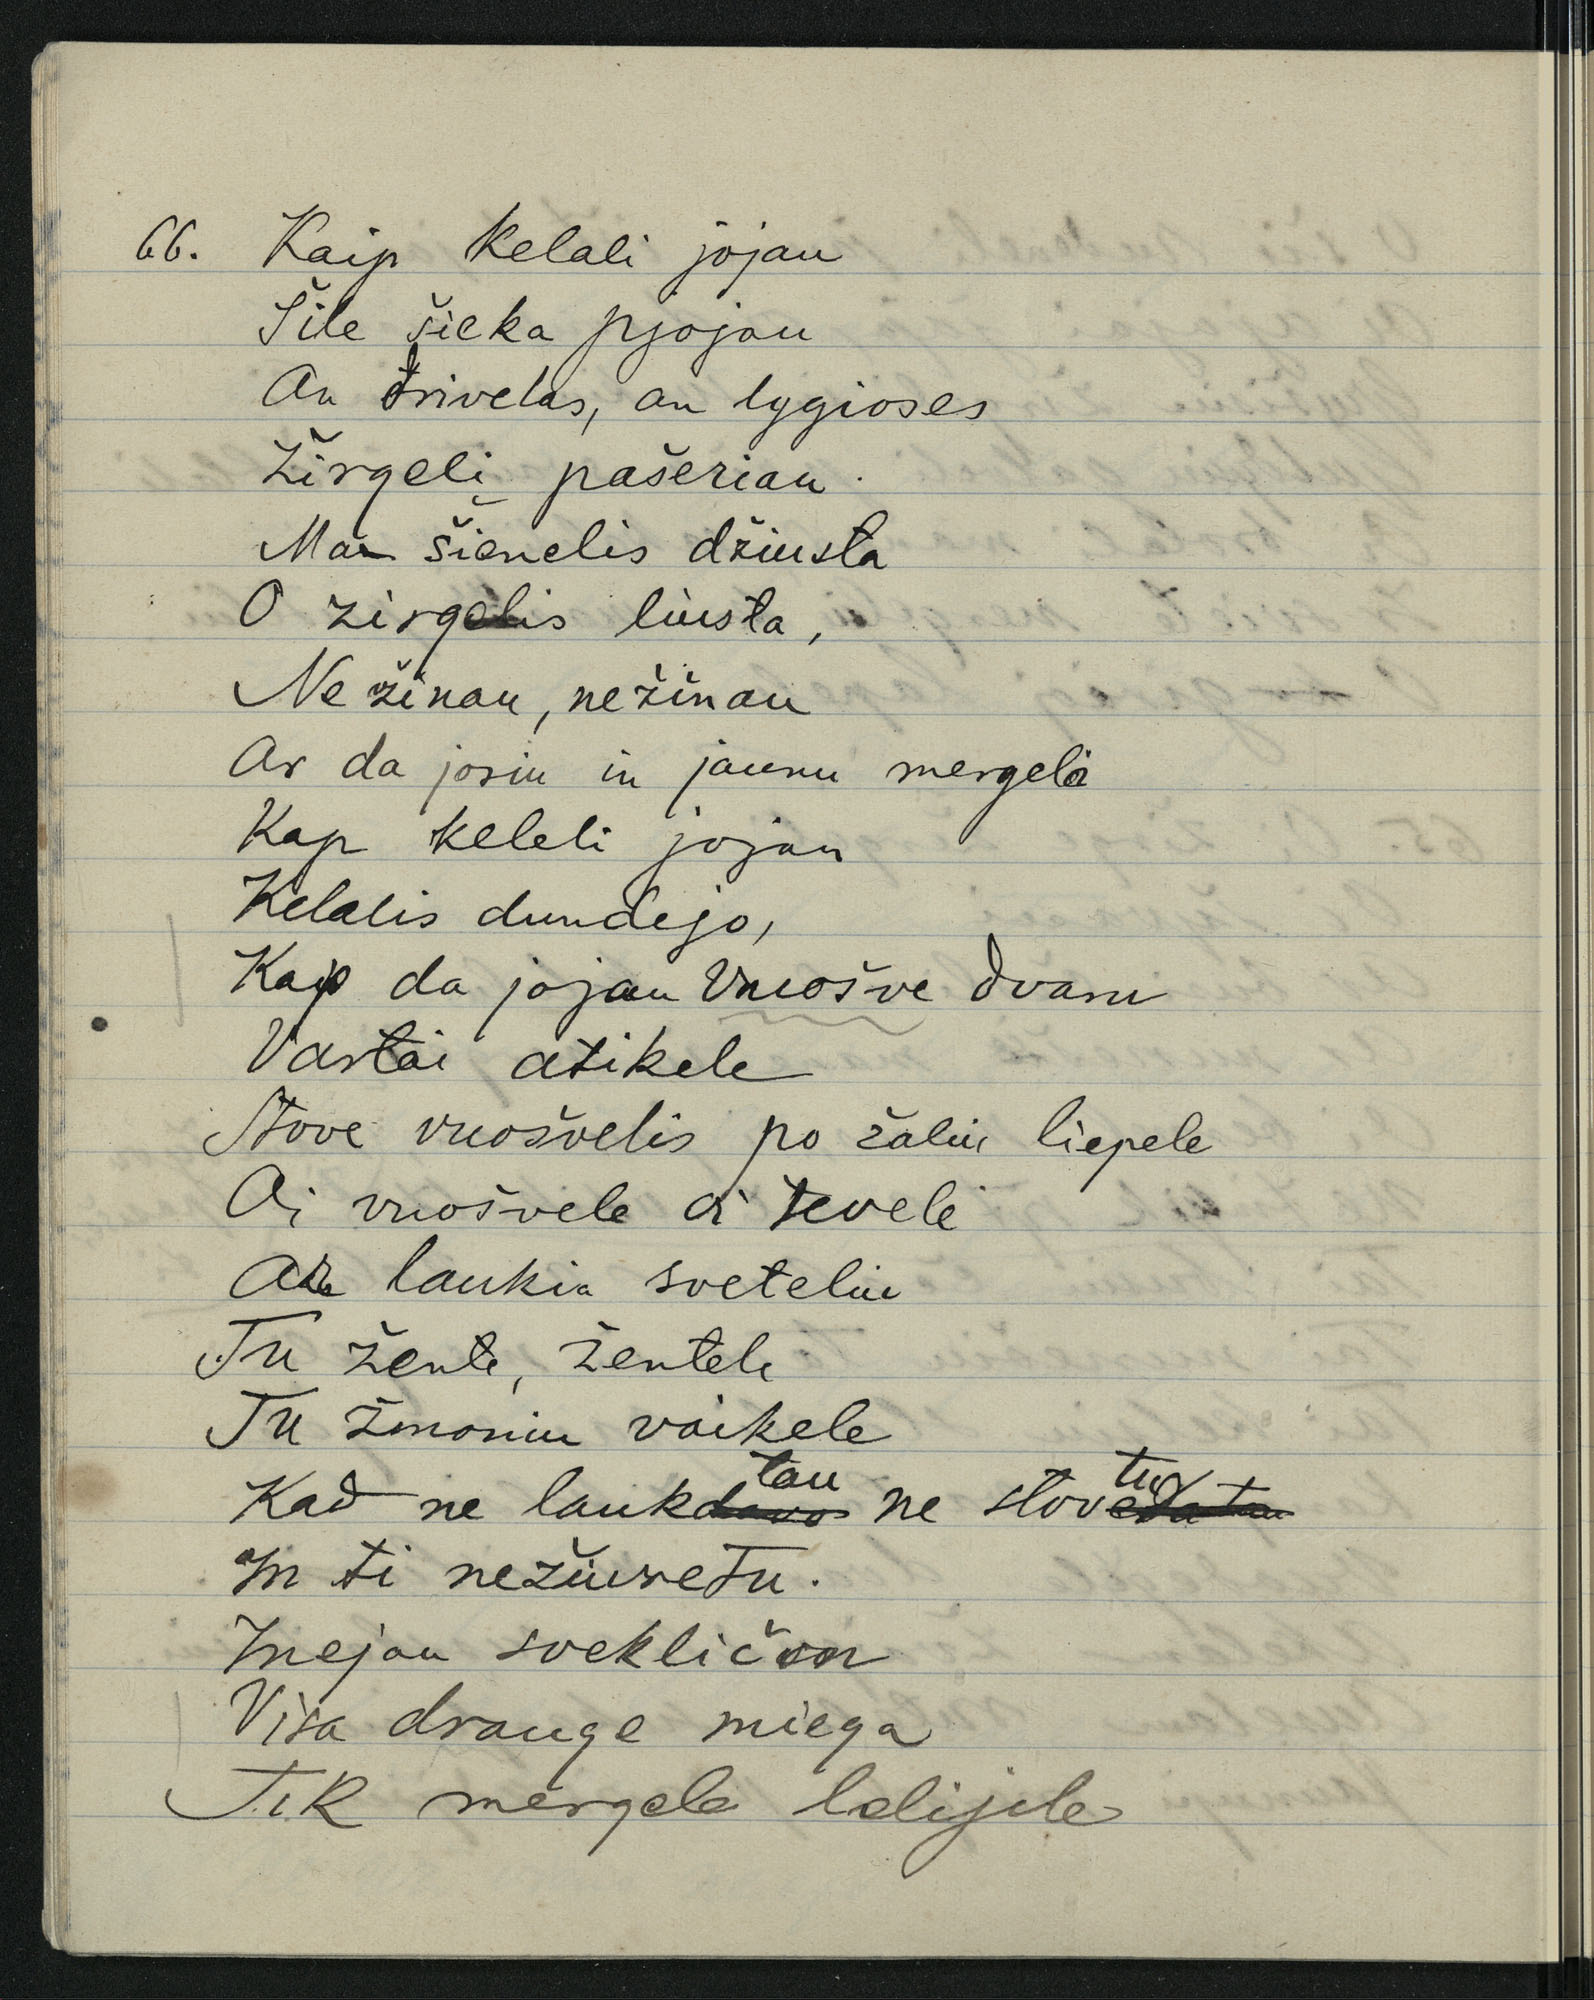 66. Kaip kelali jojau
Šile šieka pjojau
An drivelas, an lygioses
Žirgeli pašeriau.
Man šienelis džiusta
O zirgelis liusta,
Ne žinau, nežinau
Ar da josiu in jaunu mergeli
Kap keleli jojau
Kelalis dundejo,
Kaip da jojau Vuošve dvaru
Vartai atikele
Stove vuošvelis po žaliu liepele
Ai vuošvele ai tevele
Ar laukia sveteliu
Tu žente, žentele
Tu žmoniu vaikele
Kad ne lauktau ne stovetu
In ti nežiuretu.
Inejau svekličon
Visa drauge miega
Tik mergele lelijele